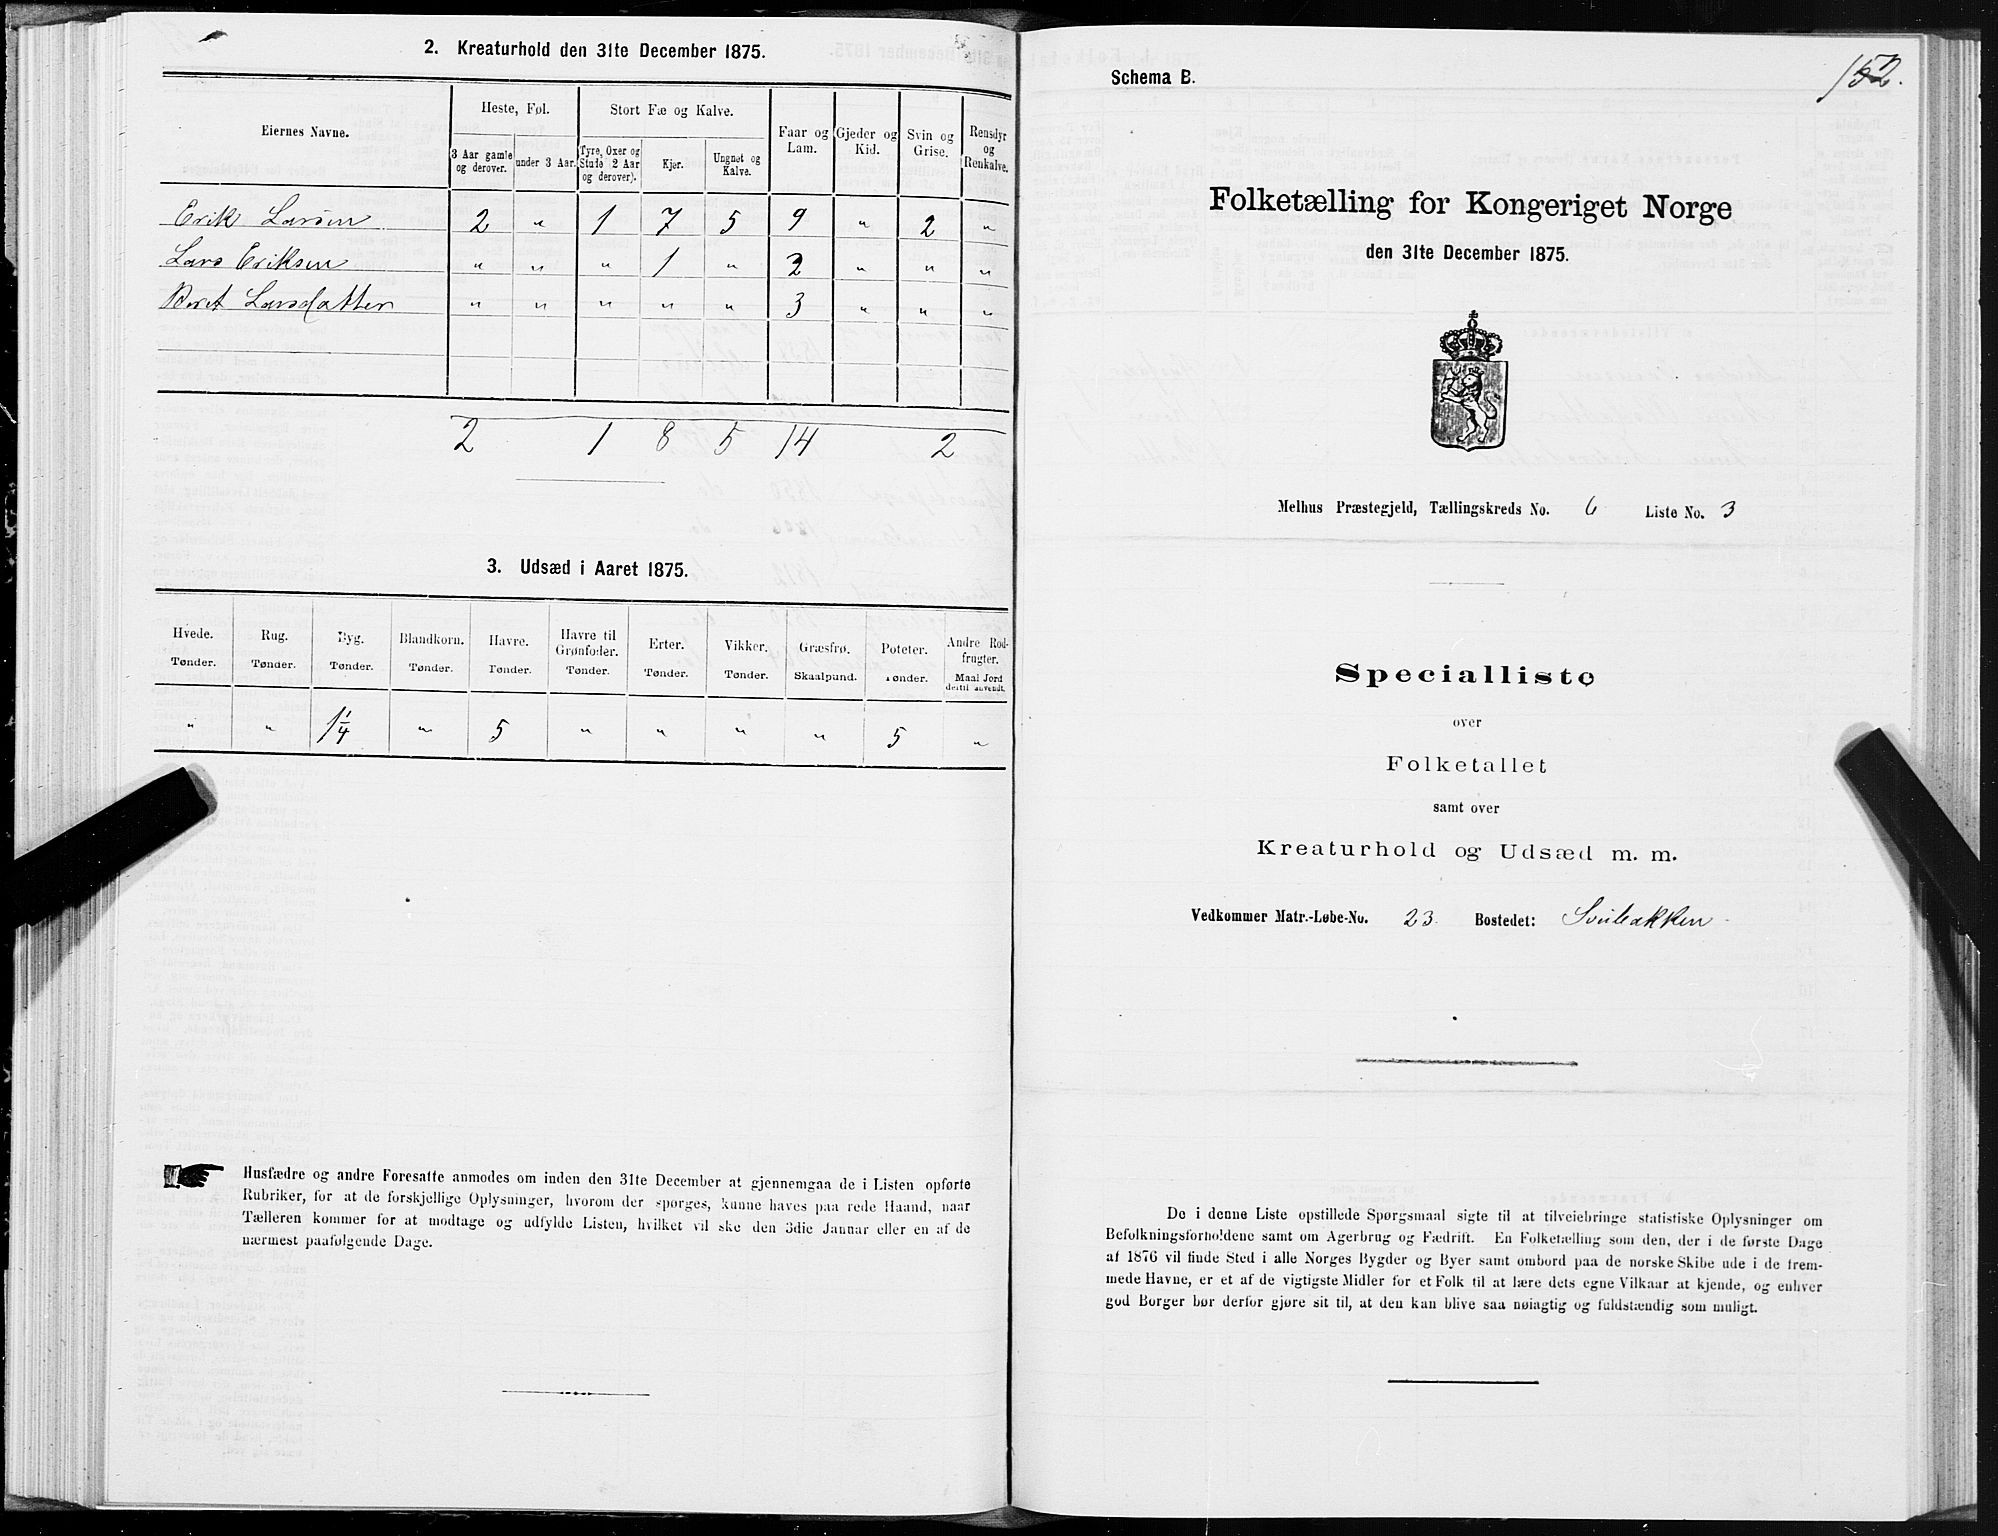 2. Kreaturhold den 31te December 1875.
Eiernes Navne.
Heste, Føl.
Stort Fæ og Kalve.
Faar og Lam.
Gjeder og Kid.
Svin og Grise.
Rensdyr og Renkalve.
3 Aar gamle og derover.
under 3 Aar.
Tyre, Oxer og Stude (2 Aar og derover).
Kjer.
Ungnet og Kalve.
Erik Larsen 2 " 1 7 5 9 " 2 "
Lars Eriksen " " " 1 " 2 " " "
Beret Larsdatter " " " " " 3 " " "
2 1 8 5 14 2
3. Udsæd i Aaret 1875.
Hvede. Rug. Byg. Blandkorn. Havre. Havre til Grønfoder. Erter. Vikker. Græsfrø. Poteter. Andre Rodfrugter.
Tønder. Tønder. Tønder. Tønder. Tønder. Tønder. Tønder. Tønder. Skaalpund. Tønder. Maal Jord dertil anvendt.
" " 1 1/4 " 5 " " " " 5 "
Husfædre og andre Foresatte anmodes om inden den 31te December at gjennemgaa de i Listen opførte
Rubriker, for at de forskjellige Oplysninger, hvorom der spørges, kunne haves paa rede Haand, naar
Tælleren kommer for at modtage og udfylde Listen, hvilket vil ske den 3die Januar eller en af de
nærmest paafølgende Dage.
152.
Schema B.
Folketælling for Kongeriget Norge
den 31te December 1875.
Melhus Præstegjeld, Tællingskreds No. 6 Liste No. 3
Specialliste
over
Folketallet
samt over
Kreaturhold og Udsæd m. m.
Vedkommer Matr.-Løbe-No. 23. Bostedet:
De i denne Liste opstillede Spørgsmaal sigte til at tilveiebringe statistiske Oplysninger om
Befolkningsforholdene samt om Agerbrug og Fædrift. En Folketælling som den, der i de første Dage
af 1876 vil finde Sted i alle Norges Bygder og Byer samt ombord paa de norske Skibe ude i de frem-
mede Havne, er et af de vigtigste Midler for et Folk til at lære dets egne Vilkaar at kjende, og enhver
god Borger bør derfor gjøre sit til, at den kan blive saa nøiagtig og fuldstændig som muligt.